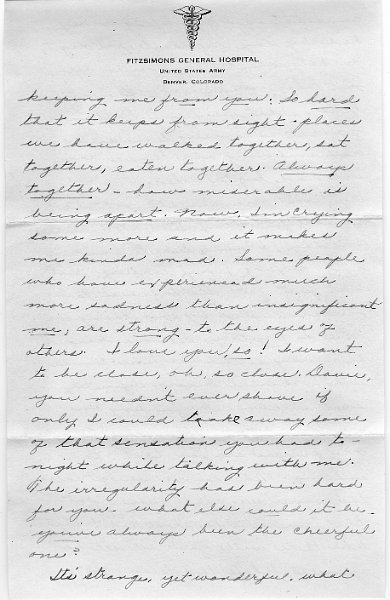 FITZSIMONS GENERAL HOSPITAL
UNITED STATES ARMY
DENVER, COLORADO
keeping me from you. So hard
that it keeps from sight - places
we have walked together, sat
together, eaten together. Always
together - how miserable is
being apart. Now, I'm crying
some more and it makes
me kinda mad. Some people
who have experienced much
more sadness than insignificant
me, are strong - to the eyes of
others. I love you, so! I want
to be close, oh, so close. Davie,
you needn't ever shave if
only I could take away some
of that sensation you had to-
night while talking with me.
The irregularity has been hard
for you. what else could it be.
you've always been the cheerful
one?
It's strange, yet wonderful, what